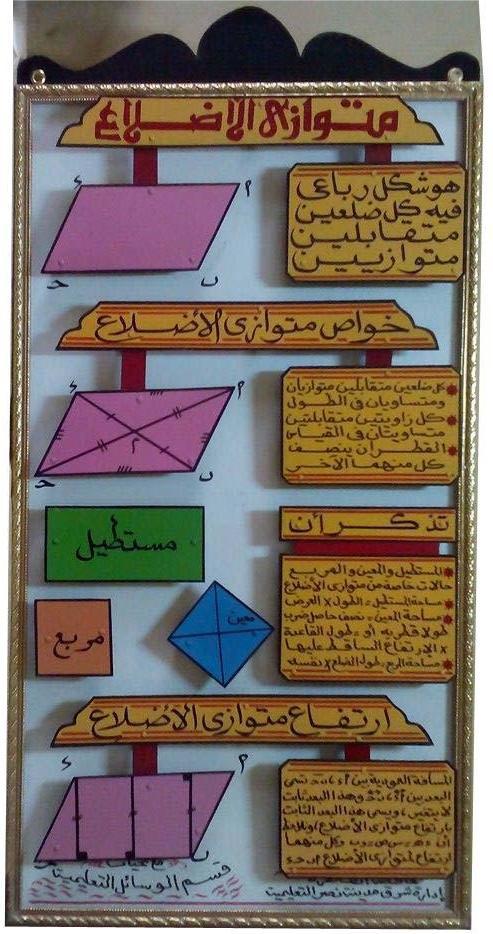 متوازى الاضلاع
ء
م
هو شكل رباعى
فيه كل ضلعين
متقابلين
متوازيين
حـ
ب
خواص متوازى الأضلاع
ء
م
كل ضلعين متقابلين متوازيان
ومتساويان فى الطول
كل زاويتين متقابلتين
متساويتان فى القياس
القطران ينصف
كل منهما الآخر
م
حـ
ب
تذكر أن
مستطيل
المستطيل والمعين والمربع
حالات خاصة من متوازى الأضلاع
مساحة المستطيل = الطول x العرض
مساحة المعين = نصف حاصل ضرب
طولا قطريه أو = طول القاعدة
x الارتفاع الساقط عليها
مساحة المربع = طول الضلع x نفسه
معين
مربع
ارتفاع متوازى الأضلاع
ء
م
المسافة العمودية بين
تسمى
البعد بين
وهذا البعد ثابت
لا يتغير، ويسمى هذا البعد الثابت
بارتفاع متوازى الأضلاع
وكل منهما
ارتفاع لمتوازى الأضلاع
حـ
ب
مع تحيات
قسم الوسائل التعليمية
بإدارة شرق مدينة نصر التعليمية